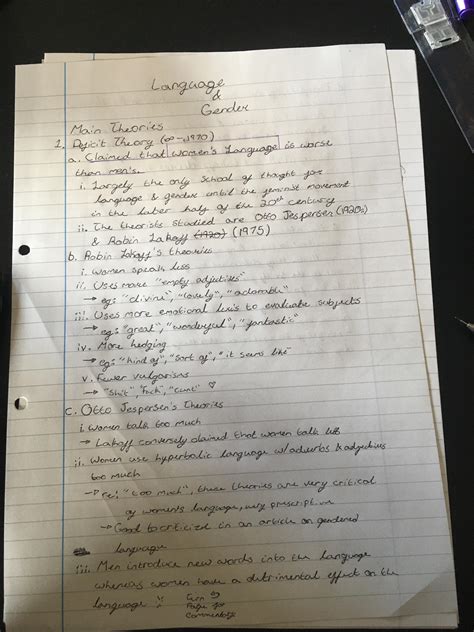 Language
&
Gender
Main Theories
1. Deficit Theory (∞-1970)
a. Claimed that women's language is worse
than men's.
i. Largely the only school of thought for
language & gender until the feminist movement
in the later half of the 20th century
ii. The theorists studied are Otto Jespersen (1920s)
& Robin Lakoff (1920) (1975)
b. Robin Lakoff's theories
i. Women speak less
ii. Uses more "empty adjectives"
→ eg: "divine", "lovely", "adorable"
iii. Uses more emotional lexis to evaluate subjects
→ eg: "great", "wonderful", "fantastic"
iv. More hedging
→ eg: "kind of", "sort of", "it seems like"
v. Fewer vulgarisms
→ "Shit", "fuck", "cunt" ♡
c. Otto Jespersen's Theories
i. Women talk too much
→ Lakoff conversely claimed that women talk less
ii. Women use hyperbolic language w/adverbs & adjectives
too much
→ "too much", these theories are very critical
of women's language, very prescriptive
→ Good to criticize in an article on gendered
language
iii. Men introduce new words into the language
whereas women have a detrimental effect on the
language
Turn
Page for
Commentary